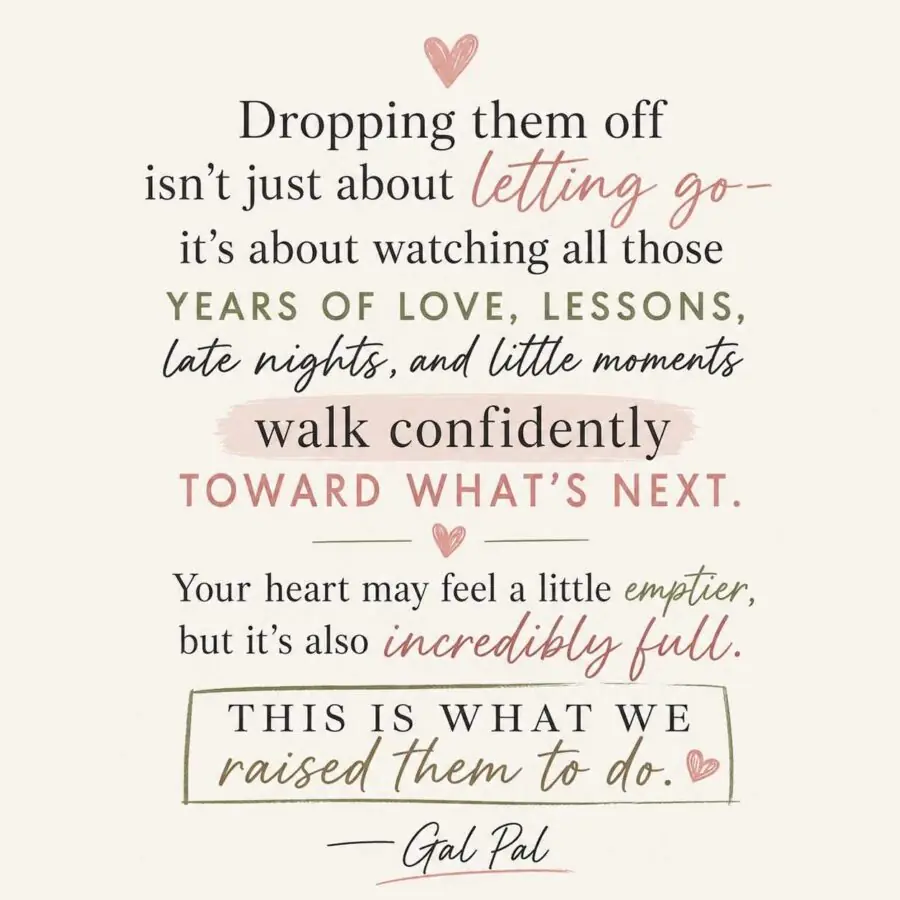 Dropping them off
isn't just about letting go–
it's about watching all those
YEARS OF LOVE, LESSONS,
late nights, and little moments
walk confidently
TOWARD WHAT'S NEXT.
Your heart may feel a little emptier,
but it's also incredibly full.
THIS IS WHAT WE
raised them to do.
— Gal Pal